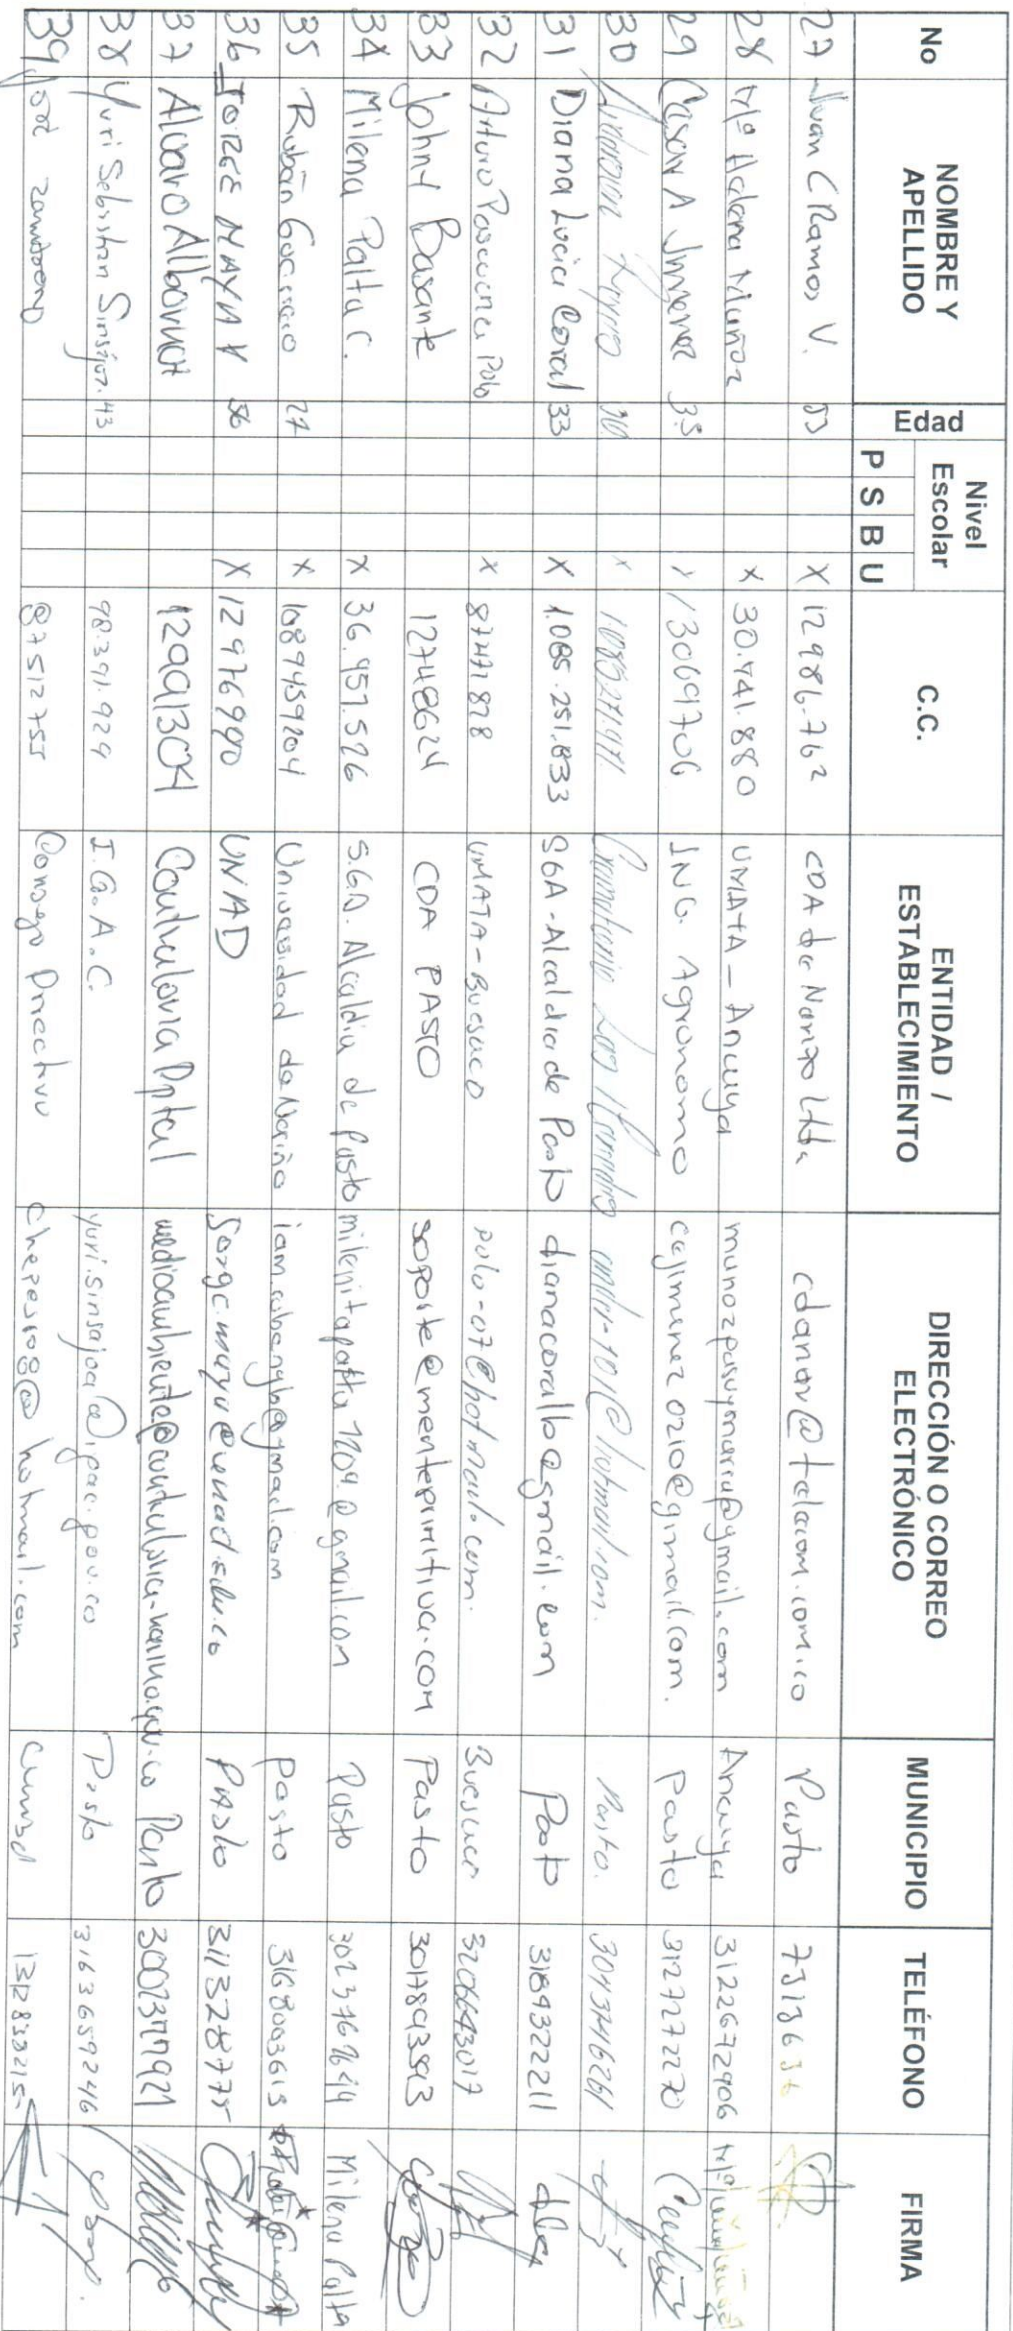 No NOMBRE Y APELLIDO Edad Nivel Escolar P S B U C.C. ENTIDAD / ESTABLECIMIENTO DIRECCIÓN O CORREO ELECTRÓNICO MUNICIPIO TELÉFONO FIRMA
27 Juan C Ramos V. 53 X 12986.762 CDA de Nariño Ltda cdanar@telecom.com.co Pasto 7313636
28 Mª Helena Muñoz x 30.741.880 UMATA - Ancuya munozpasuymaria@gmail.com Ancuya 3122672906
29 35 13069706 ING. Agronomo cajimenez0210@gmail.com. Pasto 3127272270
30 30 x 1085271971 Pasto. 3013746261
31 Diana Lucia Coral 33 X 1.085.251.833 SGA-Alcaldia de Pasto dianacoralb@gmail.com Pasto 3189322211
32 Arturo Polo x 87471828 UMATA-Buesaco polo-07@hotmail.com. Buesaco 3206643017
33 Johny Basante 12748624 CDA PASTO soporte@menteprimitiva.com Pasto 3017893593
34 Milena Patta C. x 36.957.526 S.G.A. Alcaldia de Pasto Pasto Milena Patta
35 Rubén 27 x 1089459204 Universidad de Nariño Pasto 3168003613
36 JORGE MAYA V 56 X 12976990 UNAD Jorge.maya@unad.edu.co Pasto 3113287775
37 Alvaro Albornoz 12991304 Contraloria Dptal Pasto 3002377921
38 Yuri Sebastian Sinsajoa. 43 98.391.929 I.G.A.C. yuri.sinsajoa@igac.gov.co Pasto 3163659246
39 José Zambrano 87512755 Consejo Directivo chepes108@hotmail.com Cumbal